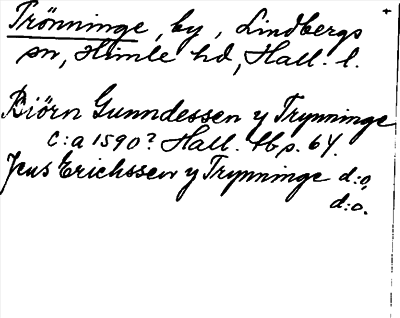 Trönninge, by, Lindbergs
sn, Himle hd, Hall. l.
Biörn Gunndessen y Trynninge
c:a 1590? Hall. tb p. 64.
Jens Erichssen y Trynninge d:o,
d:o.